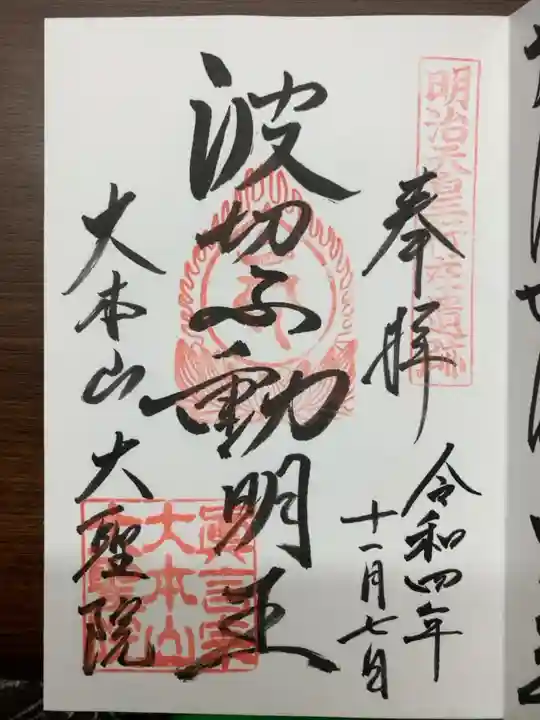 明治天皇行在所遺跡
奉拝
令和四年
十一月七日
波切不動明王
大本山大聖院
眞言宗
大本山
大聖院